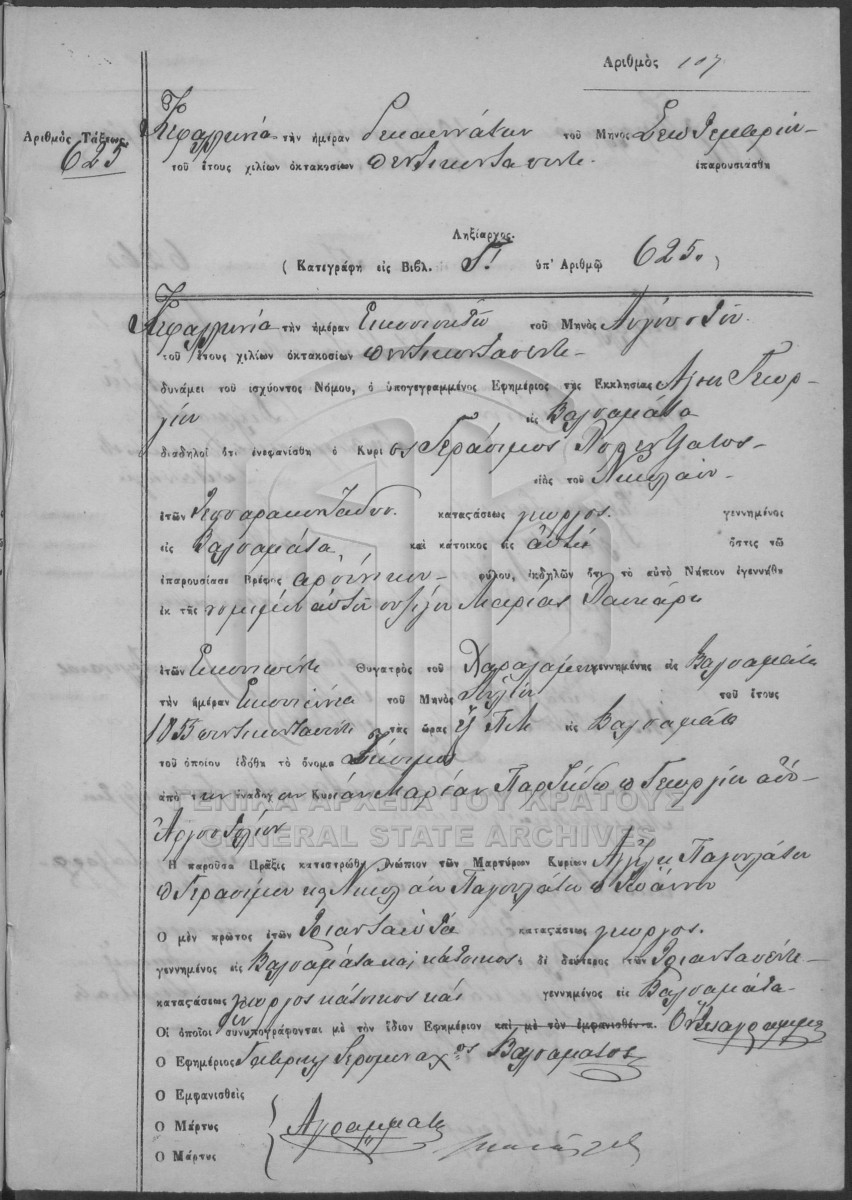 Ἀριθμὸς 107
Ἀριθμὸς Τάξεως.
625
Κεφαλληνία τὴν ἡμέραν δεκαεννάτην τοῦ Μηνὸς Σεπτεμβρίου
τοῦ ἔτους χιλίων ὀκτακοσίων πεντήκοντα πέντε ἐπαρουσιάσθη
Ληξίαρχος.
( Κατεγράφη εἰς Βιβλ. ὑπ' Ἀριθμῷ 625. )
Κεφαλληνία τὴν ἡμέραν Εικοσιοκτὼ τοῦ Μηνὸς Αυγούστου
τοῦ ἔτους χιλίων ὀκτακοσίων πεντήκοντα πέντε
δυνάμει τοῦ ἰσχύοντος Νόμου, ὁ ὑπογεγραμμένος Ἐφημέριος τῆς Ἐκκλησίας Αγίου Γεωρ-
γίου εἰς Βαλσαμάτα
διαδηλοῖ ὅτι ἐνεφανίσθη ὁ Κύριος Γεράσιμος
υἱὸς τοῦ Νικολάου
ἐτῶν Τεσσαρακονταδύο καταςάσεως γεωργος. γεννημένος
εἰς Βαλσαμάτα, καὶ κάτοικος εἰς αὐτό ὅστις τῷ
ἐπαρουσίασε Βρέφος αρσενικου φύλου, ἐκδηλῶν ὅτι τὸ αὐτὸ Νήπιον ἐγεννήθη
ἐκ τῆς νομίμου αυτού συζύγου Μαρίας
ἐτῶν Εικοσιπέντε Θυγατρὸς τοῦ Χαραλάμπου γεννημένης εἰς Βαλσαμάτα
τὴν ἡμέραν Εικοσιεννέα τοῦ Μηνὸς Ιουλίου τοῦ ἔτους
1855 πεντηκονταπέντε τὰς ὥρας ἓξ Π.Μ. εἰς Βαλσαμάτα
τοῦ ὁποίου ἐδόθη τὸ ὄνομα
ἀπὸ την ἀνάδοχον Κυρίαν Μαρίαν Γεωργίου από
Αργοστόλιον
Ἡ παροῦσα Πρᾶξις κατεστρώθη ἐνώπιον τῶν Μαρτύρων Κυρίων Παγουλάτου
π Γερασίμου κ Νικολάου Παγουλάτου π Ιωάννου
Ὁ μὲν πρῶτος ἐτῶν Τριανταοκτώ καταςάσεως γεωργος.
γεννημένος εἰς Βαλσαμάτα και κάτοικος δὲ δεύτερος ἐτῶν Τριανταπέντε
καταςάσεως γεωργος κάτοικος και γεννημένος εἰς Βαλσαμάτα
Οἱ ὁποῖοι συνυπογράφονται μὲ τὸν ἴδιον Ἐφημέριον καὶ μὲ τὸν ἐμφανισθέντα.
Ὁ Ἐφημέριος Γαβριηλ Ιερομοναχος Βαλσαματος
Ὁ Ἐμφανισθεὶς
Ὁ Μάρτυς Αγράμματοι
Ὁ Μάρτυς
ΓΕΝΙΚΑ ΑΡΧΕΙΑ ΤΟΥ ΚΡΑΤΟΥΣ
GENERAL STATE ARCHIVES